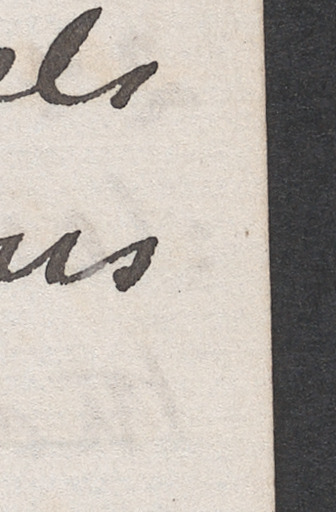 els
us